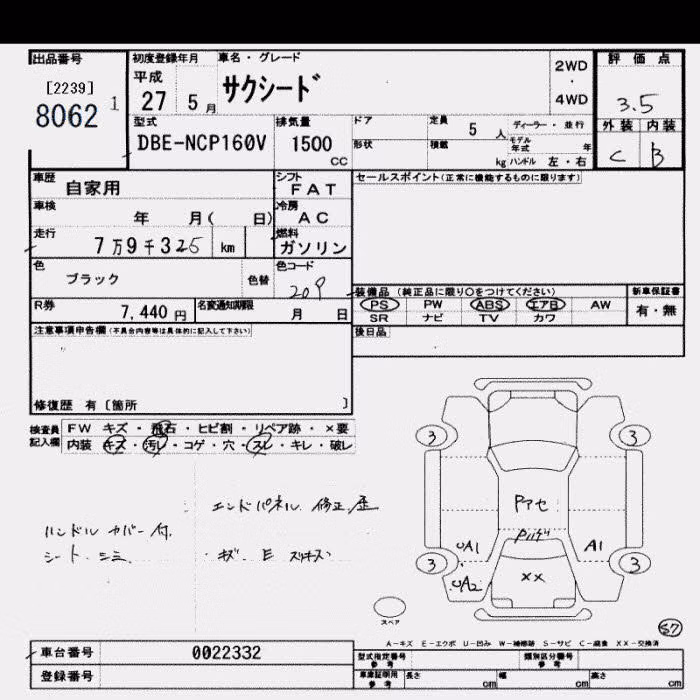 出品番号
[2239]
8062 1
初度登録年月
平成
27 5月
車名・グレード
サクシード
2WD
・
4WD
評価点
3.5
外装 内装
C B
型式
DBE-NCP160V
排気量
1500
CC
ドア
定員
5人
ディーラー・並行
形状
積載
kg
モデル年式 年
ハンドル 左・右
車歴
自家用
シフト
FAT
セールスポイント(正常に機能するものに限ります)
車検
年 月( 日)
冷房
AC
走行
7万9千325 km
燃料
ガソリン
色
ブラック
色替
色コード
209
装備品 (純正品に限り○をつけてください)
PS PW ABS エアB AW
SR ナビ TV カワ
新車保証書
有・無
R券
7,440円
名変通知期限
月 日
後日品
注意事項申告欄(不具合内容等は具体的に記入して下さい)
修復歴 有〔箇所 〕
検査員記入欄
FW キズ・飛石・ヒビ割・リペア跡・×要
内装 キズ・汚レ・コゲ・穴・スレ・キレ・破レ
エンドパネル 修正 歪
ハンドル カバー付.
シート シミ
・キズ E
3 3
Pアセ
UA1
A1
3 3
UA2
XX
スペア
S7
A-キズ E-エクボ U-凹み W-補修跡 S-サビ C-腐食 XX-交換済
車台番号
0022332
登録番号
型式指定番号
参考
類別区分番号
参考
車庫証明用
参考
長さ cm
幅 cm
高さ cm